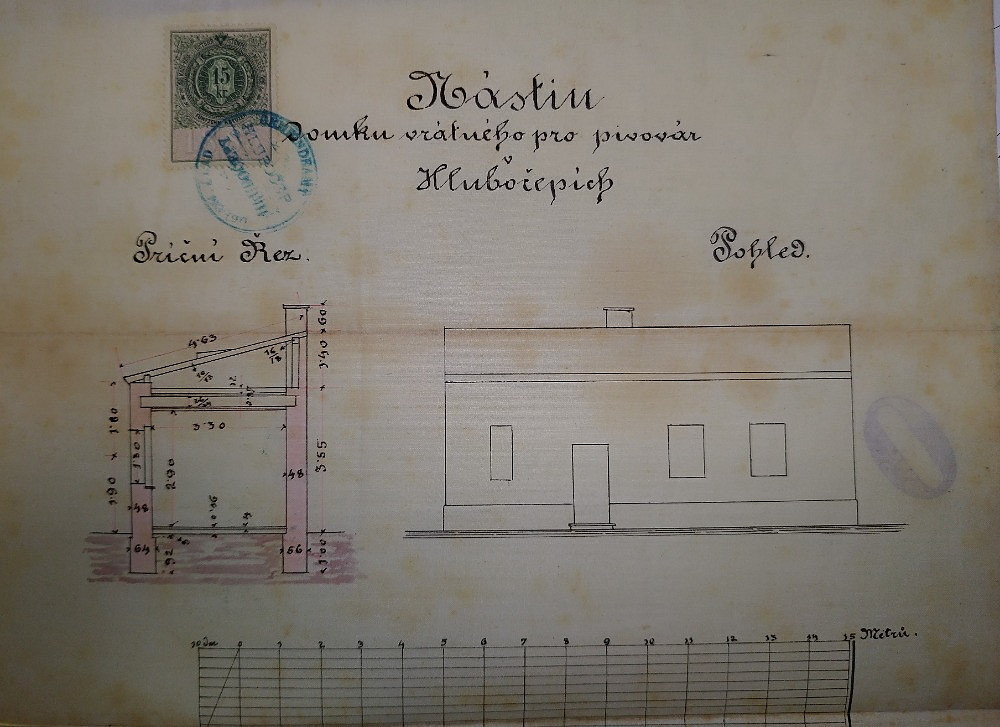 15
kr
Nástin
Domku vrátného pro pivovár
Hlubočepich
Príčni Řez.
Pohled.
4·63
60
1·40
16/18
3·30
1·80
1·30
2·90
3·55
1·90
48
48
64
56
92
1·00
10 Dm 0 1 2 3 4 5 6 7 8 9 10 11 12 13 14 15 Metrů.